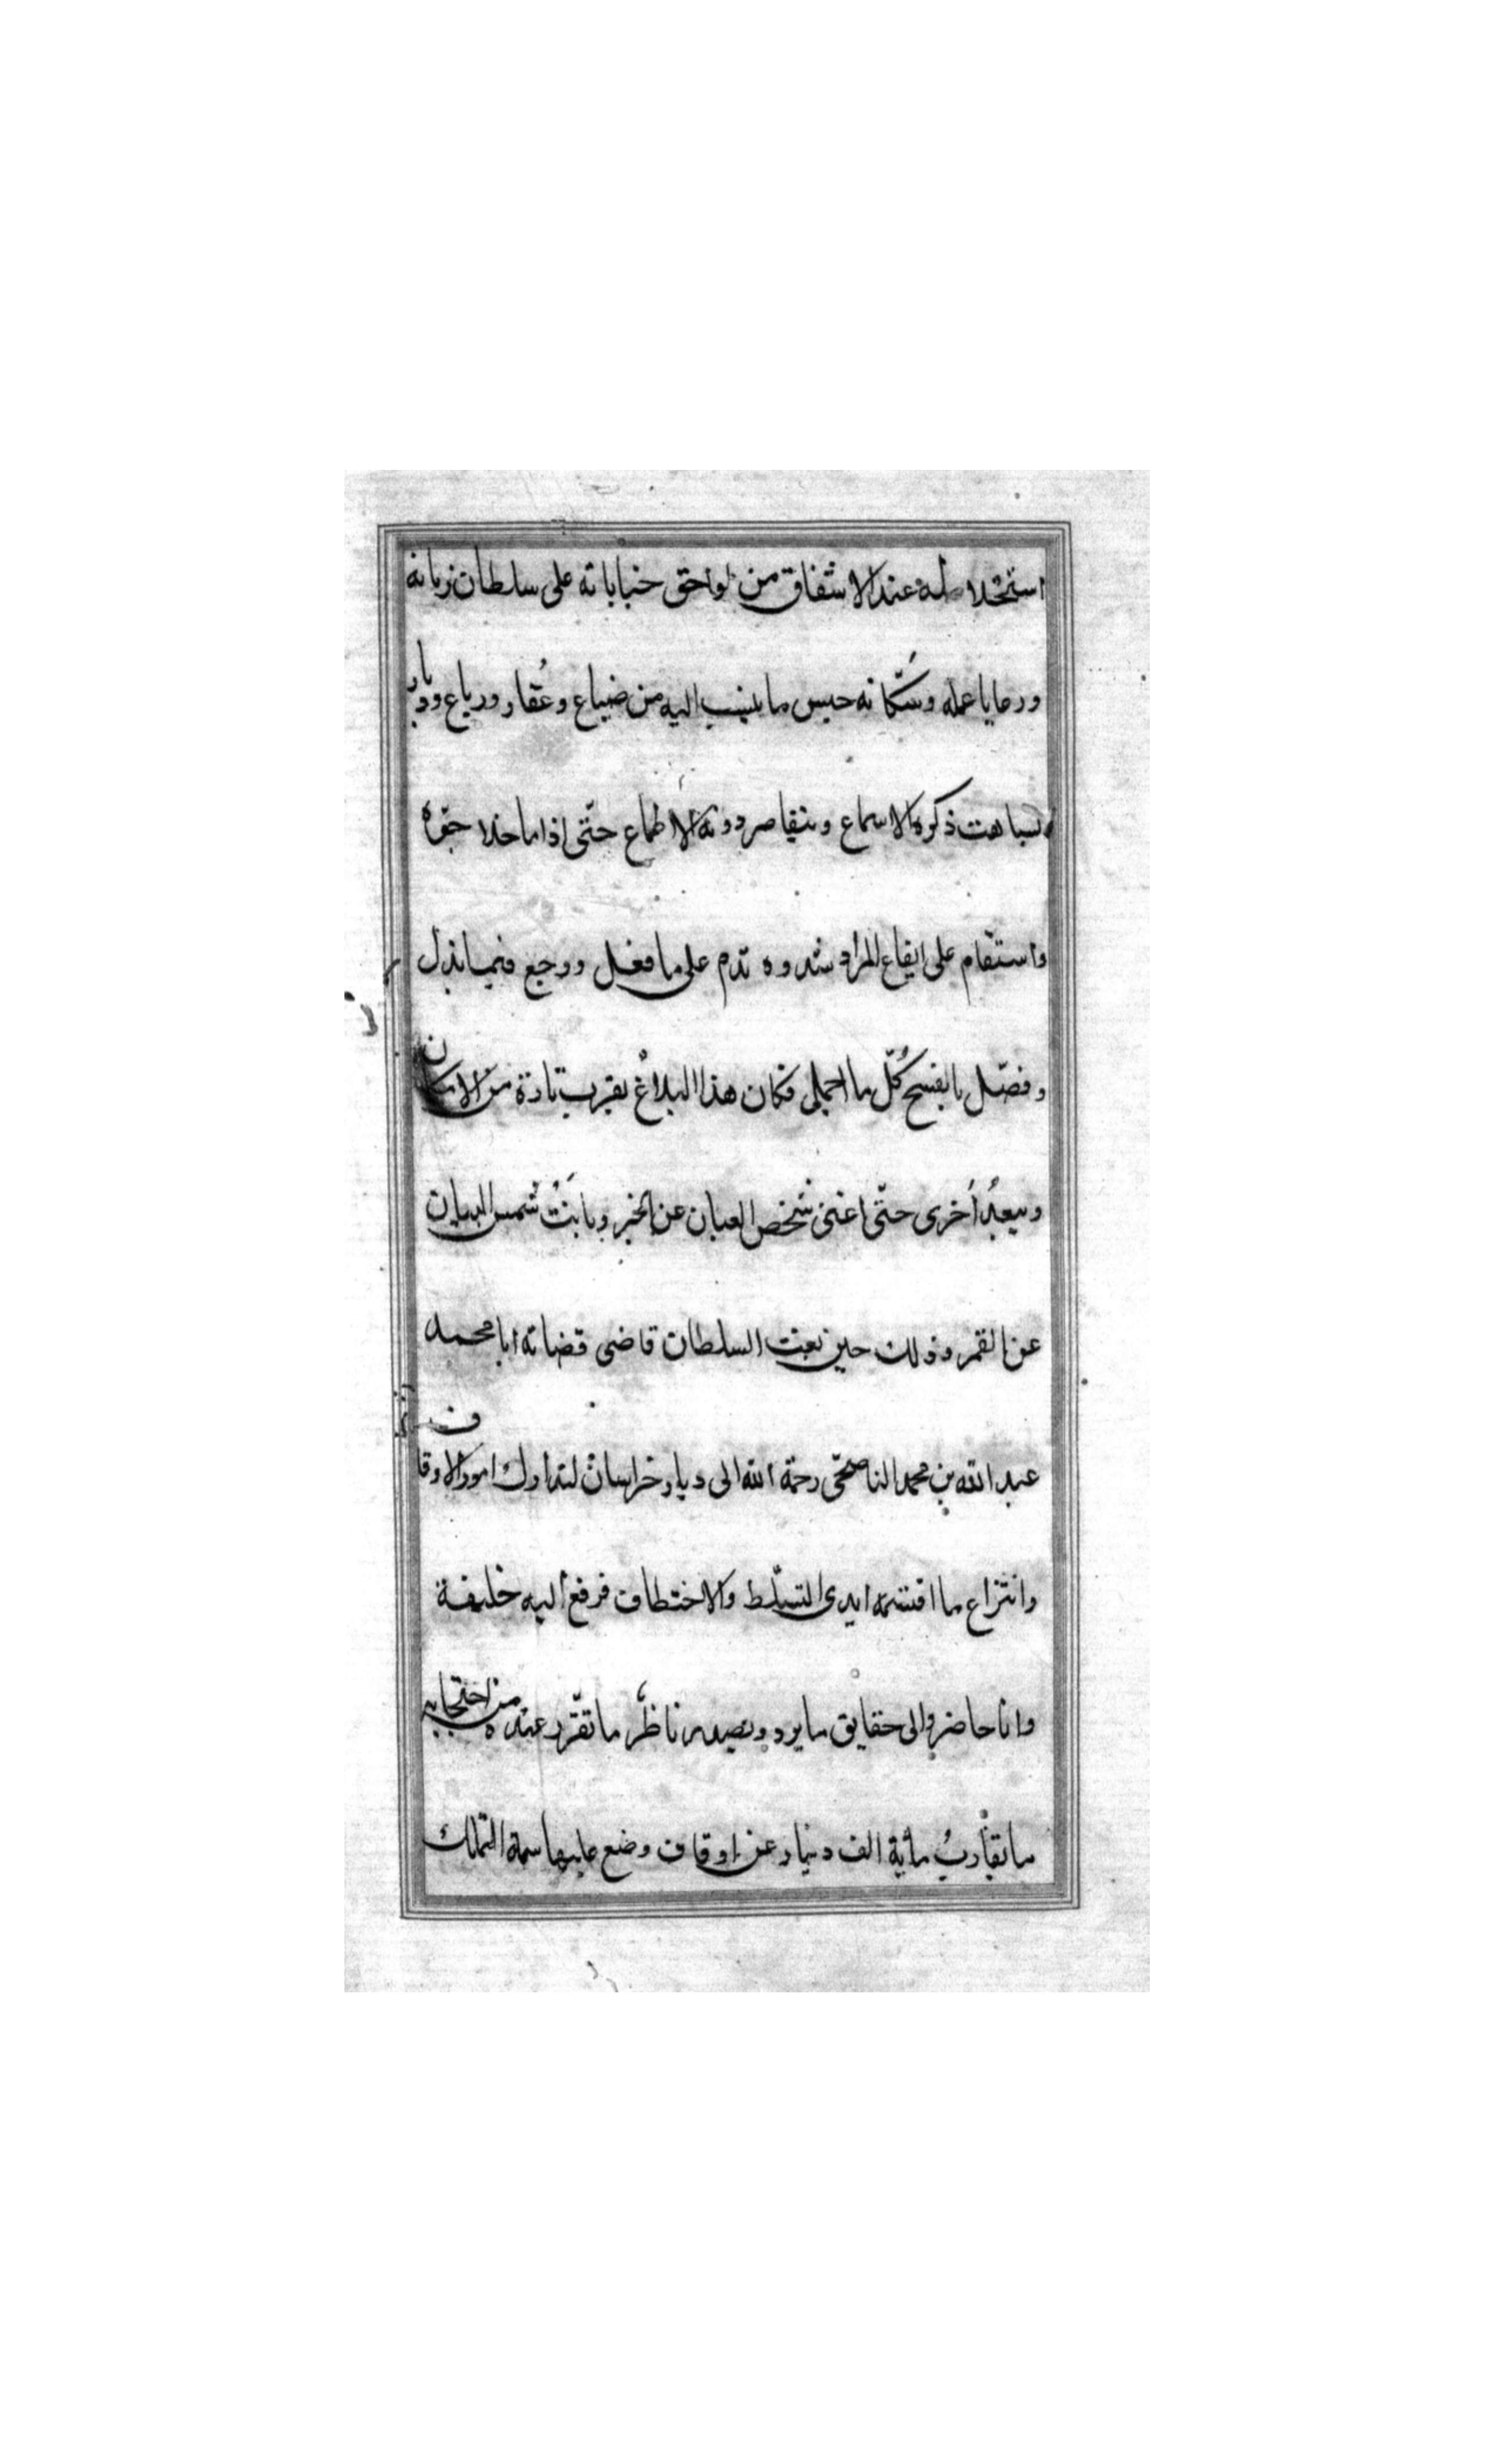 استخلاصه عند الاشفاق من لواحق خباياته على سلطان زمانه
ورعايا عمله وسُكّانه حبس ما ينسب اليه من ضياع وعُقار ورباع وديار
ذكره الاسماع ويتقاصر دونه الاطماع حتّى اذا ما خلا جوّه
واستقام على ايقاع المراد شدوه ندم على ما فعل ورجع فيما بذل
وفصّل بالفسخ كُلّ ما اجمل فكان هذا البلاغ يقرب تارة من الامكان
ويبعُد اُخرى حتّى اغنى شخص العيان عن الخبر وبانَتْ شمس البيان
عن القمر وذلك حين بعث السلطان قاضى قضاته ابا محمد
عبد الله بن محمد الناصحىّ رحمة الله الى ديار خراسان لتدارك امور الاوقاف
وانتزاع ما اقتسمه ايدى التسلّط والاختطاف فرفع اليه خليفة
وانا حاضر والى حقايق ما يرد ويصدر ناظر ما تقرّر عنده من احتجابه
ما يقاربُ مأية الف دينار عن اوقاف وضع عليها سمة التملك